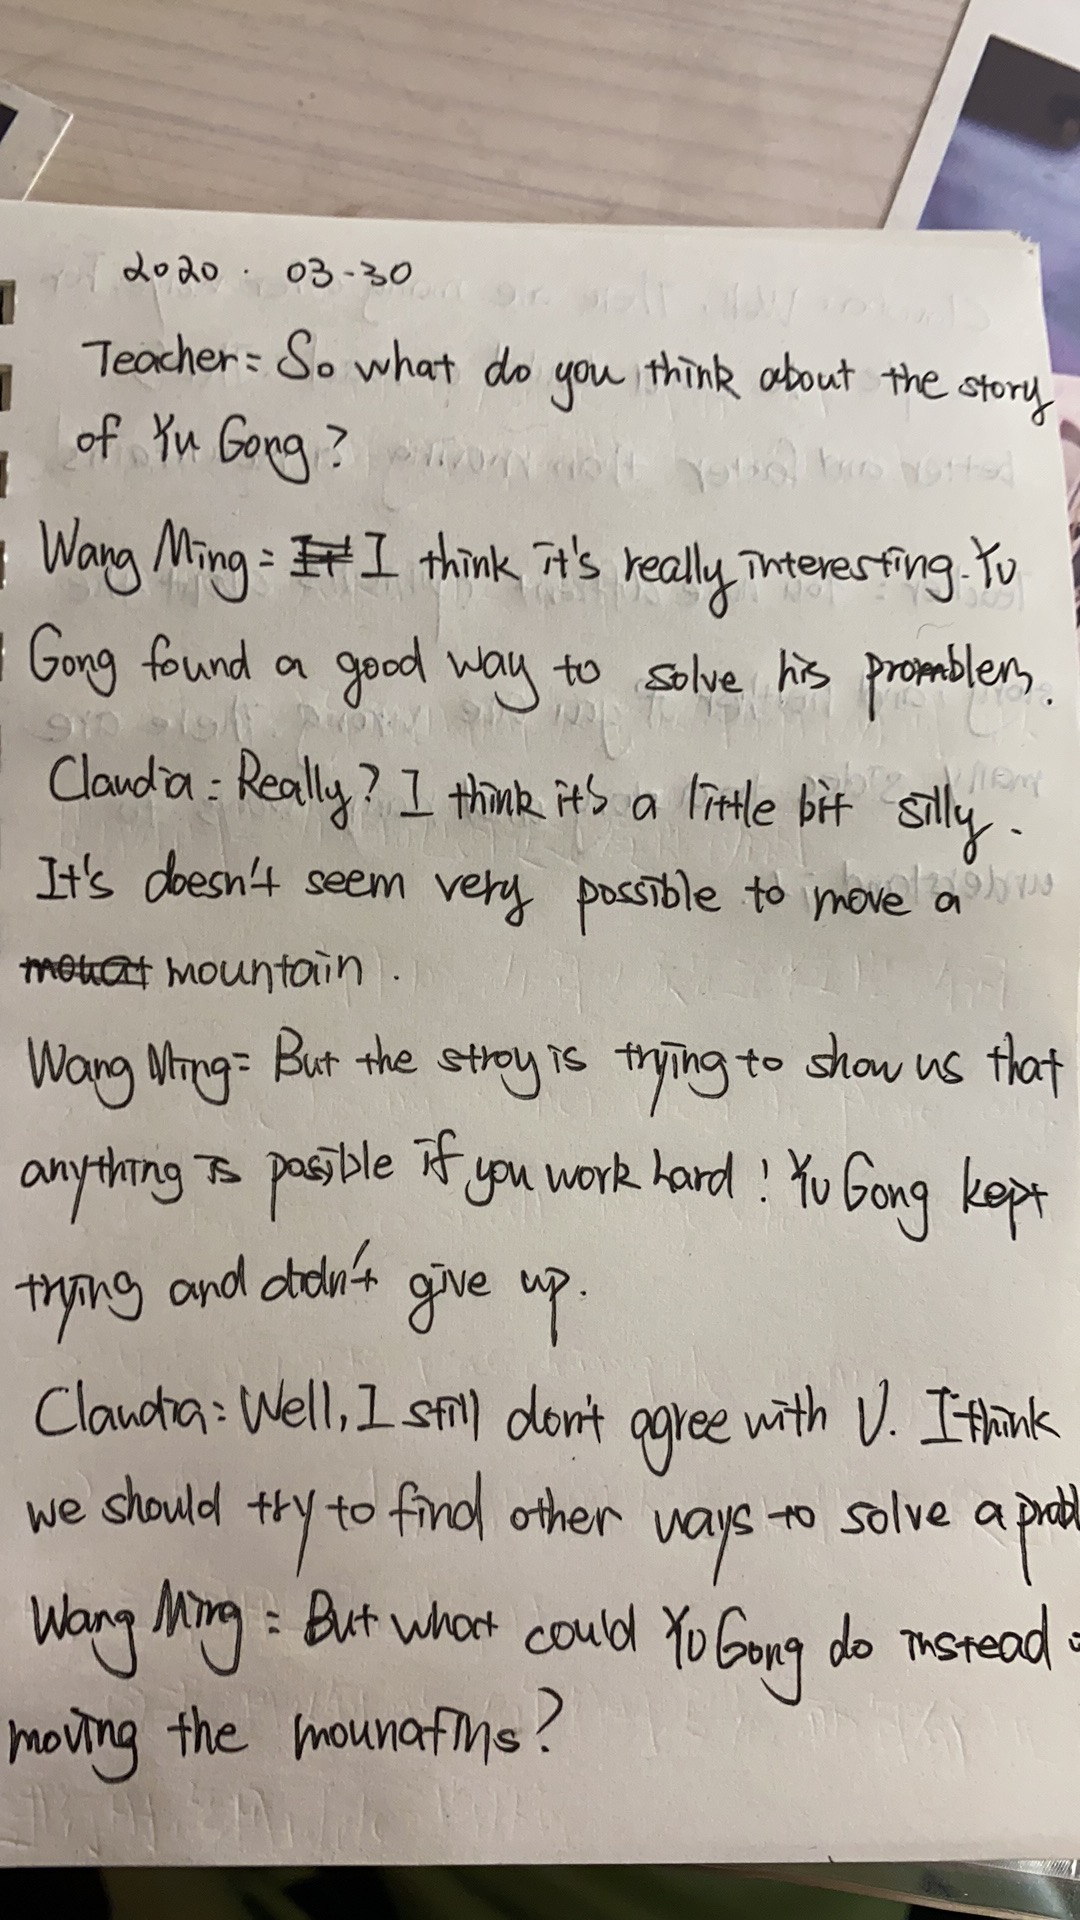 2020 . 03-30
Teacher: So what do you think about the story
of Yu Gong?
Wang Ming: I think it's really interesting. Yu
Gong found a good way to solve his promblem.
Claudia: Really? I think it's a little bit silly.
It's doesn't seem very possible to move a
mountain.
Wang Ming: But the stroy is trying to show us that
anything is possible if you work hard! Yu Gong kept
trying and didn't give up.
Claudia: Well, I still don't agree with U. I think
we should try to find other ways to solve a probl
Wang Ming: But what could Yu Gong do instead
moving the mounatins?